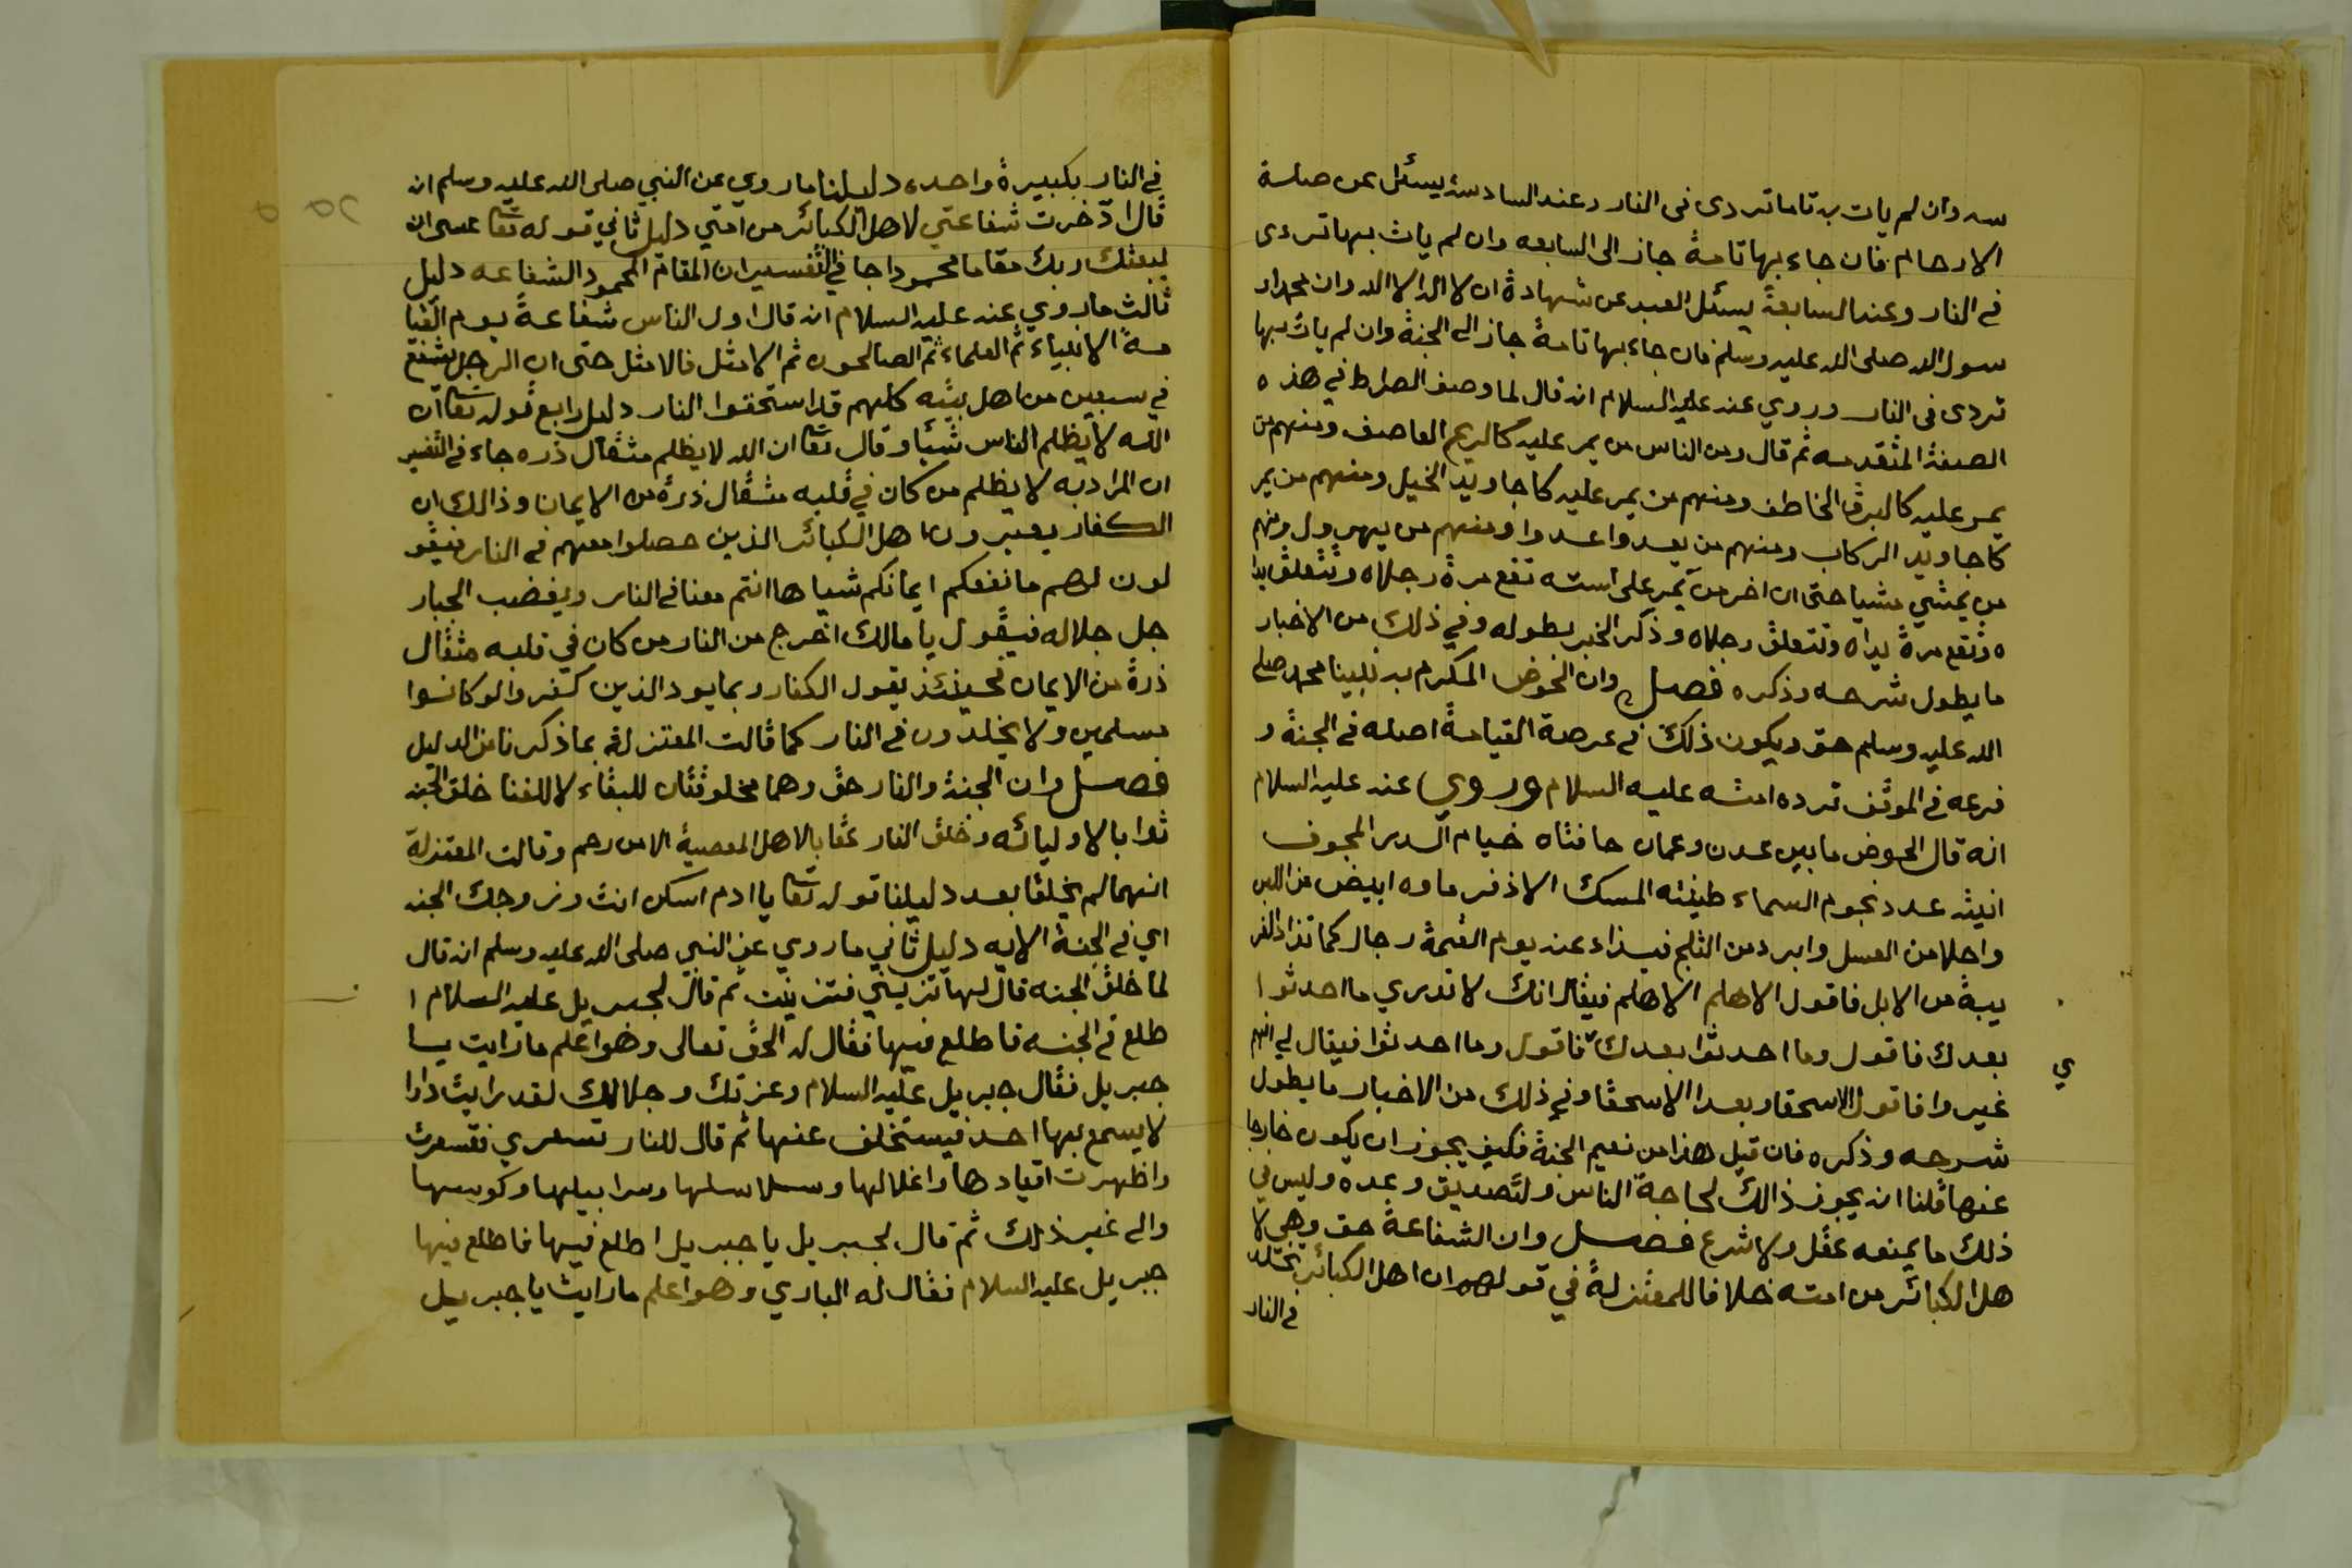 سه وان لم يات به تاما تردى فى النار وعند السادسة يسئل عن صلة
الارحام فان جاء بها تامة جاز الى السابعه وان لم يات بها تردى
في النار وعند السابعة يسئل العبد عن شهادة ان لا اله الا الله وان محمدا ر
سول الله صلى الله عليه وسلم فان جاء بها تامة جاز الى الجنة وان لم يات بها
تردى فى النار وروي عنه عليه السلام انه قال لما وصف الصراط في هذه
الصفة المتقدمه ثم قال ومن الناس من يمر عليه كالريح العاصف ومنهم من
يمر عليه كالبرق الخاطف ومنهم من يمر عليه كاجاويد الخيل ومنهم من يمر
كاجاويد الركاب ومنهم من يعدوا عدوا ومنهم من يهرول ومنهم
من يمشي مشيا حتى ان اخر من يمر على استه تقع مرة رجلاه وتتعلق يدا
ه وتقع مرة يداه وتتعلق رجلاه وذكر الخبر بطوله وفي ذلك من الاخبار
ما يطول شرحه وذكره فصل وان الحوض المكرم به نبينا محمد صلى
الله عليه وسلم حق ويكون ذلك في عرصة القيامة اصله في الجنة و
فرعه في الموقف ترده امته عليه السلام وروي عنه عليه السلام
انه قال الحوض ما بين عدن وعمان حافتاه خيام الدر المجوف
انيته عدد نجوم السماء طينته المسك الاذفر ماوه ابيض من اللبن
واحلا من العسل وابرد من الثلج فيذاد عنه يوم القيمة رجال كما تذاد الغر
يبة من الابل فاقول الا هلم الا هلم فيقال انك لا تدري ما احدثوا
بعدك فاقول وما احدثوا بعدك فاقول وما احدثوا فيقال لي انهم
ي
غيروا فاقول الا سحقا وبعدا الا سحقا وفي ذلك من الاخبار ما يطول
شرحه وذكره فان قيل هذا من نعيم الجنة فكيف يجوز ان يكون خارجا
عنها قلنا انه يجوز ذالك لحاجة الناس ولتصديق وعده وليس في
ذلك ما يمنعه عقل ولا شرع فصل وان الشفاعة حق وهي لا
هل الكبائر من امته خلافا للمعتزلة في قولهم ان اهل الكبائر تخلد
في النار
في النار بكبيرة واحده دليلنا ما روي عن النبي صلى الله عليه وسلم انه
قال ادخرت شفاعتي لاهل الكبائر من امتي دليل ثاني قوله تعا عسى ان
يبعثك ربك مقاما محمودا جا في التفسير ان المقام المحمود الشفاعه دليل
ثالث ما روي عنه عليه السلام انه قال اول الناس شفاعة يوم القيا
مة الانبياء ثم العلماء ثم الصالحون ثم الامثل فالامثل حتى ان الرجل يشفع
في سبعين من اهل بيته كلهم قد استحقوا النار دليل رابع قوله تعا ان
الله لا يظلم الناس شيئا وقال تعا ان الله لا يظلم مثقال ذره جاء في التفسير
ان المراد به لا يظلم من كان في قلبه مثقال ذرة من الايمان وذالك ان
الكفار يعيرون اهل الكبائر الذين حصلوا معهم في النار فيقو
لون لهم ما نفعكم ايمانكم شيا ها انتم معنا في النار ويغضب الجبار
جل جلاله فيقول يا مالك اخرج من النار من كان في قلبه مثقال
ذرة من الايمان فحينئذ يقول الكفار ربما يود الذين كفروا لو كانوا
مسلمين ولا يخلدون في النار كما قالت المعتزلة بما ذكرنا من الدليل
فصل وان الجنة والنار حق وهما مخلوقتان للبقاء لا للفنا خلق الجنه
ثوابا لاوليائه وخلق النار عقابا لاهل المعصية الا من رحم وقالت المعتزلة
انهما لم يخلقا بعد دليلنا قوله تعا يا ادم اسكن انت وزوجك الجنه
اي في الجنة الايه دليل ثاني ما روي عن النبي صلى الله عليه وسلم انه قال
لما خلق الجنه قال لها تزيني فتزينت ثم قال لجبريل عليه السلام ا
طلع في الجنه فاطلع فيها فقال له الحق تعالى وهو اعلم ما رايت يا
جبريل فقال جبريل عليه السلام وعزتك وجلالك لقد رايت دارا
لا يسمع بها احد فيستخلف عنها ثم قال للنار تسعري فتسعرت
واظهرت اقيادها واغلالها وسلاسلها وسرابيلها
والى غير ذلك ثم قال لجبريل يا جبريل اطلع فيها فاطلع فيها
جبريل عليه السلام فقال له الباري وهو اعلم ما رايت يا جبريل